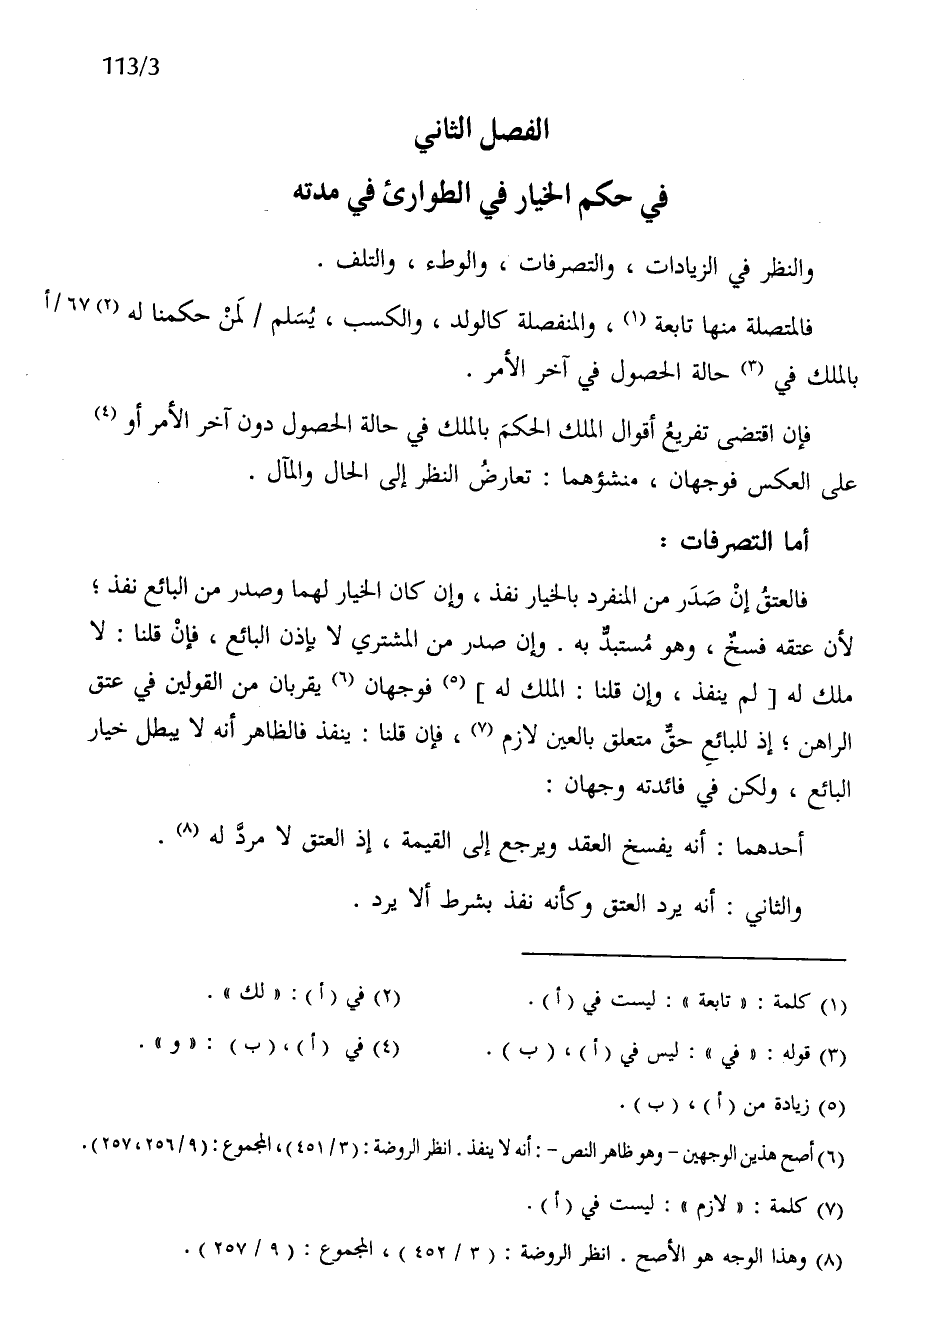 113/3
الفصل الثاني
في حكم الخيار في الطوارئ في مدته
والنظر في الزيادات ، والتصرفات ، والوطء ، والتلف .
فالمتصلة منها تابعة (١) ، والمنفصلة كالولد ، والكسب ، يُسَلم / لَمَنْ حكمنا له (٢) ٦٧/أ
بالملك في (٣) حالة الحصول في آخر الأمر .
فإن اقتضى تفريعُ أقوال الملك الحكمَ بالملك في حالة الحصول دون آخر الأمر أو (٤)
على العكس فوجهان ، منشؤهما : تعارضُ النظر إلى الحال والمآل .
أما التصرفات :
فالعتقُ إنْ صَدَر من المنفرد بالخيار نفذ ، وإن كان الخيار لهما وصدر من البائع نفذ ؛
لأن عتقه فسخٌ ، وهو مُستبدٌّ به . وإن صدر من المشتري لا بإذن البائع ، فإنْ قلنا : لا
ملك له [ لم ينفذ ، وإن قلنا : الملك له ] (٥) فوجهان (٦) يقربان من القولين في عتق
الراهن ؛ إذ للبائعِ حقٌّ متعلق بالعين لازم (٧) ، فإن قلنا : ينفذ فالظاهر أنه لا يبطل خيار
البائع ، ولكن في فائدته وجهان :
أحدهما : أنه يفسخ العقد ويرجع إلى القيمة ، إذ العتق لا مردَّ له (٨) .
والثاني : أنه يرد العتق وكأنه نفذ بشرط ألا يرد .
(١) كلمة : « تابعة » : ليست في ( أ ) .
(٢) في ( أ ) : « لك » .
(٣) قوله : « في » : ليس في ( أ ) ، ( ب ) .
(٤) في ( أ ) ، ( ب ) : « و » .
(٥) زيادة من ( أ ) ، ( ب ) .
(٦) أصح هذين الوجهين – وهو ظاهر النص – : أنه لا ينفذ . انظر الروضة : (٣ /٤٥١) ، المجموع : (٩ /٢٥٦ ، ٢٥٧) .
(٧) كلمة : « لازم » : ليست في ( أ ) .
(٨) وهذا الوجه هو الأصح . انظر الروضة : ( ٣ / ٤٥٢ ) ، المجموع : ( ٩ / ٢٥٧ ) .